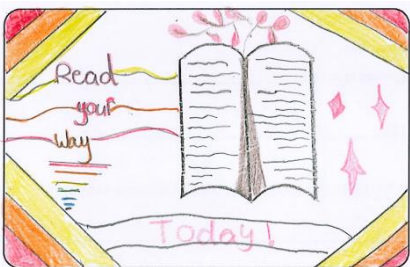 Read
your
Way
Today!